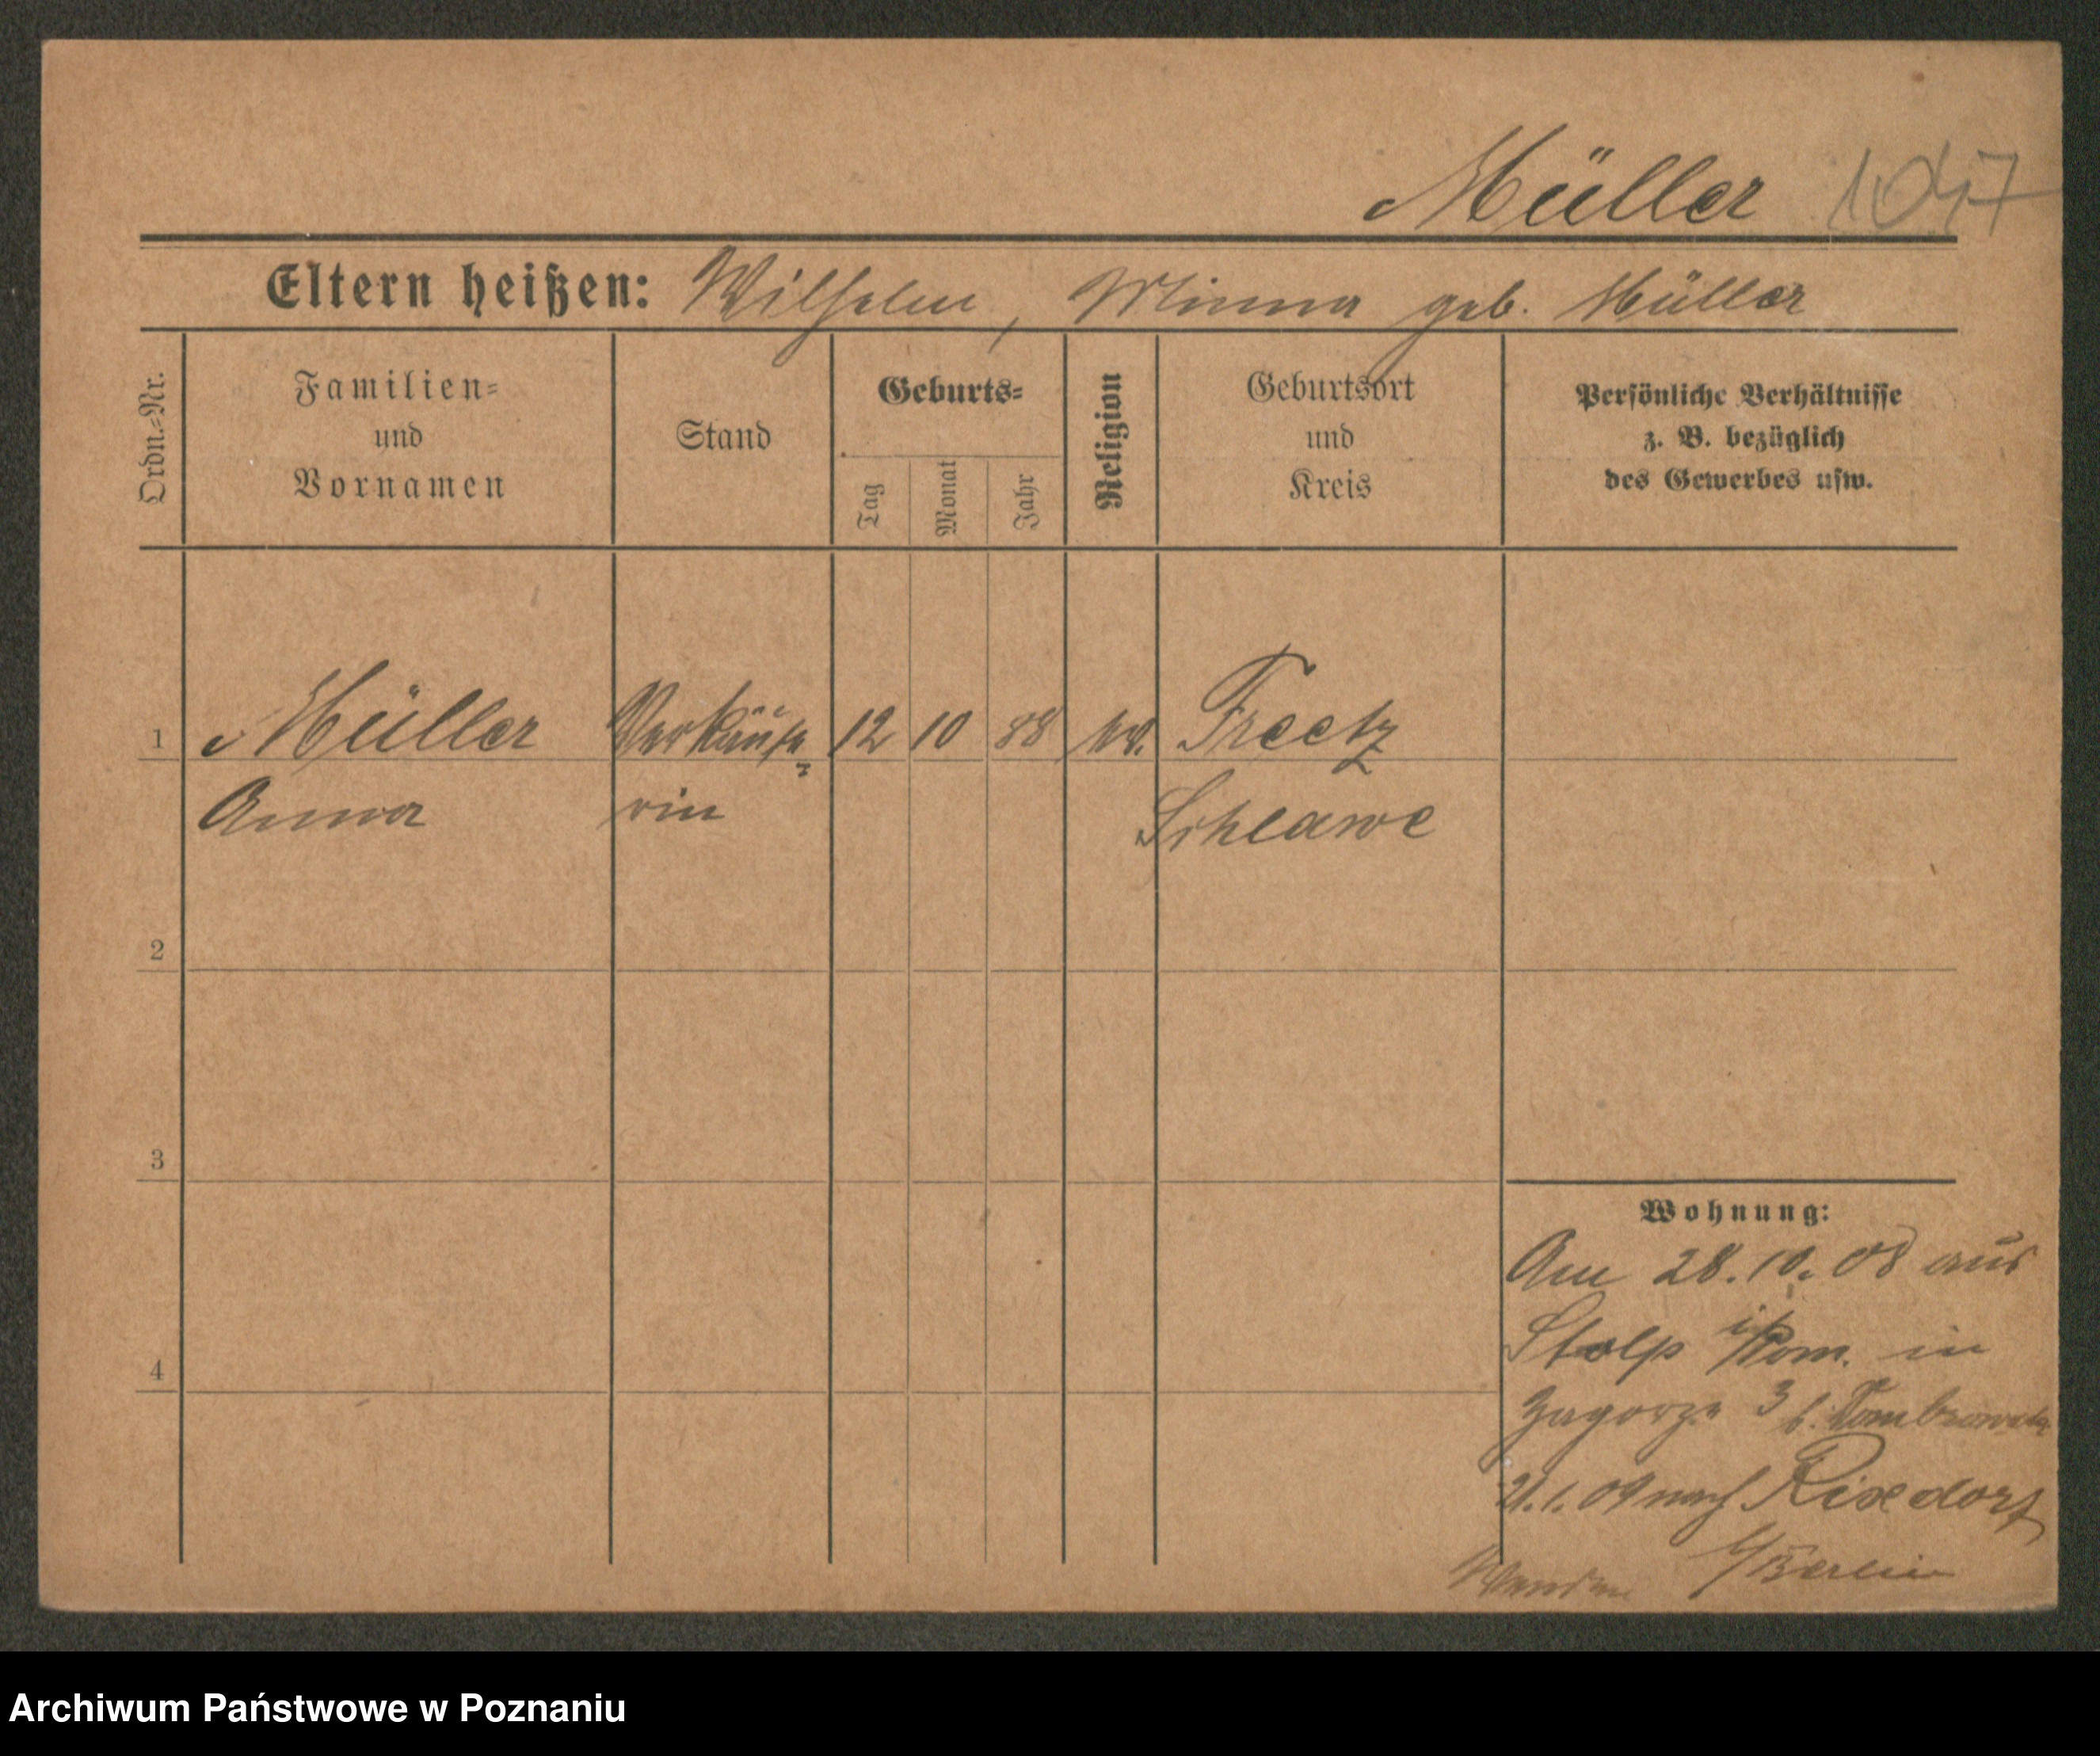 Müller 1047
Eltern heißen: Wilhelm, Minna geb. Müller
Ordn.=Nr.
Familien=
und
Vornamen
Stand
Geburts=
Tag
Monat
Jahr
Religion
Geburtsort
und
Kreis
Persönliche Verhältnisse
z. B. bezüglich
des Gewerbes usw.
1 Müller Verkäufe= 12 10 88 ev. Freetz
Anna rin Schlawe
2
3
4
Wohnung:
Am 28.10.08 aus
Stolp i/Pom. in
Zagorze 3 b. Dombrowska
21.1.09 nach Rixdorf
b/Berlin
Wenden
Archiwum Państwowe w Poznaniu